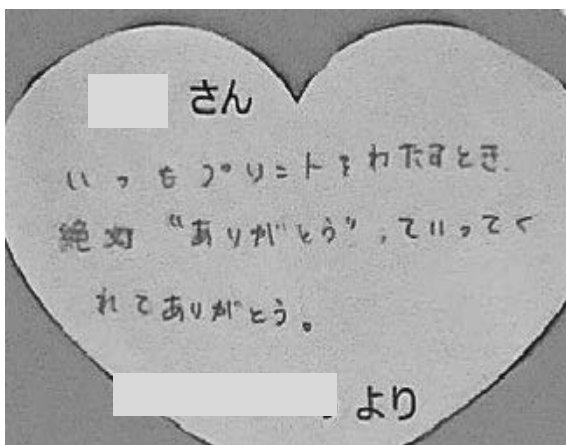 さん
いつもプリントをわたすとき、
絶対“ありがとう”、ていってく
れてありがとう。
より